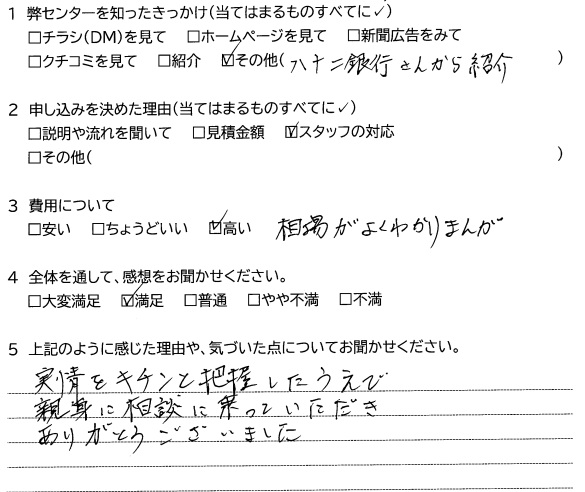 1 弊センターを知ったきっかけ(当てはまるものすべてに✓)
□チラシ(DM)を見て □ホームページを見て □新聞広告をみて
□クチコミを見て □紹介 ☑その他(八十二銀行さんから紹介 )
2 申し込みを決めた理由(当てはまるものすべてに✓)
□説明や流れを聞いて □見積金額 ☑スタッフの対応
□その他( )
3 費用について
□安い □ちょうどいい ☑高い 相場がよくわかりまんが
4 全体を通して、感想をお聞かせください。
□大変満足 ☑満足 □普通 □やや不満 □不満
5 上記のように感じた理由や、気づいた点についてお聞かせください。
実情をキチンと把握したうえで
親身に相談に乗っていただき
ありがとうございました